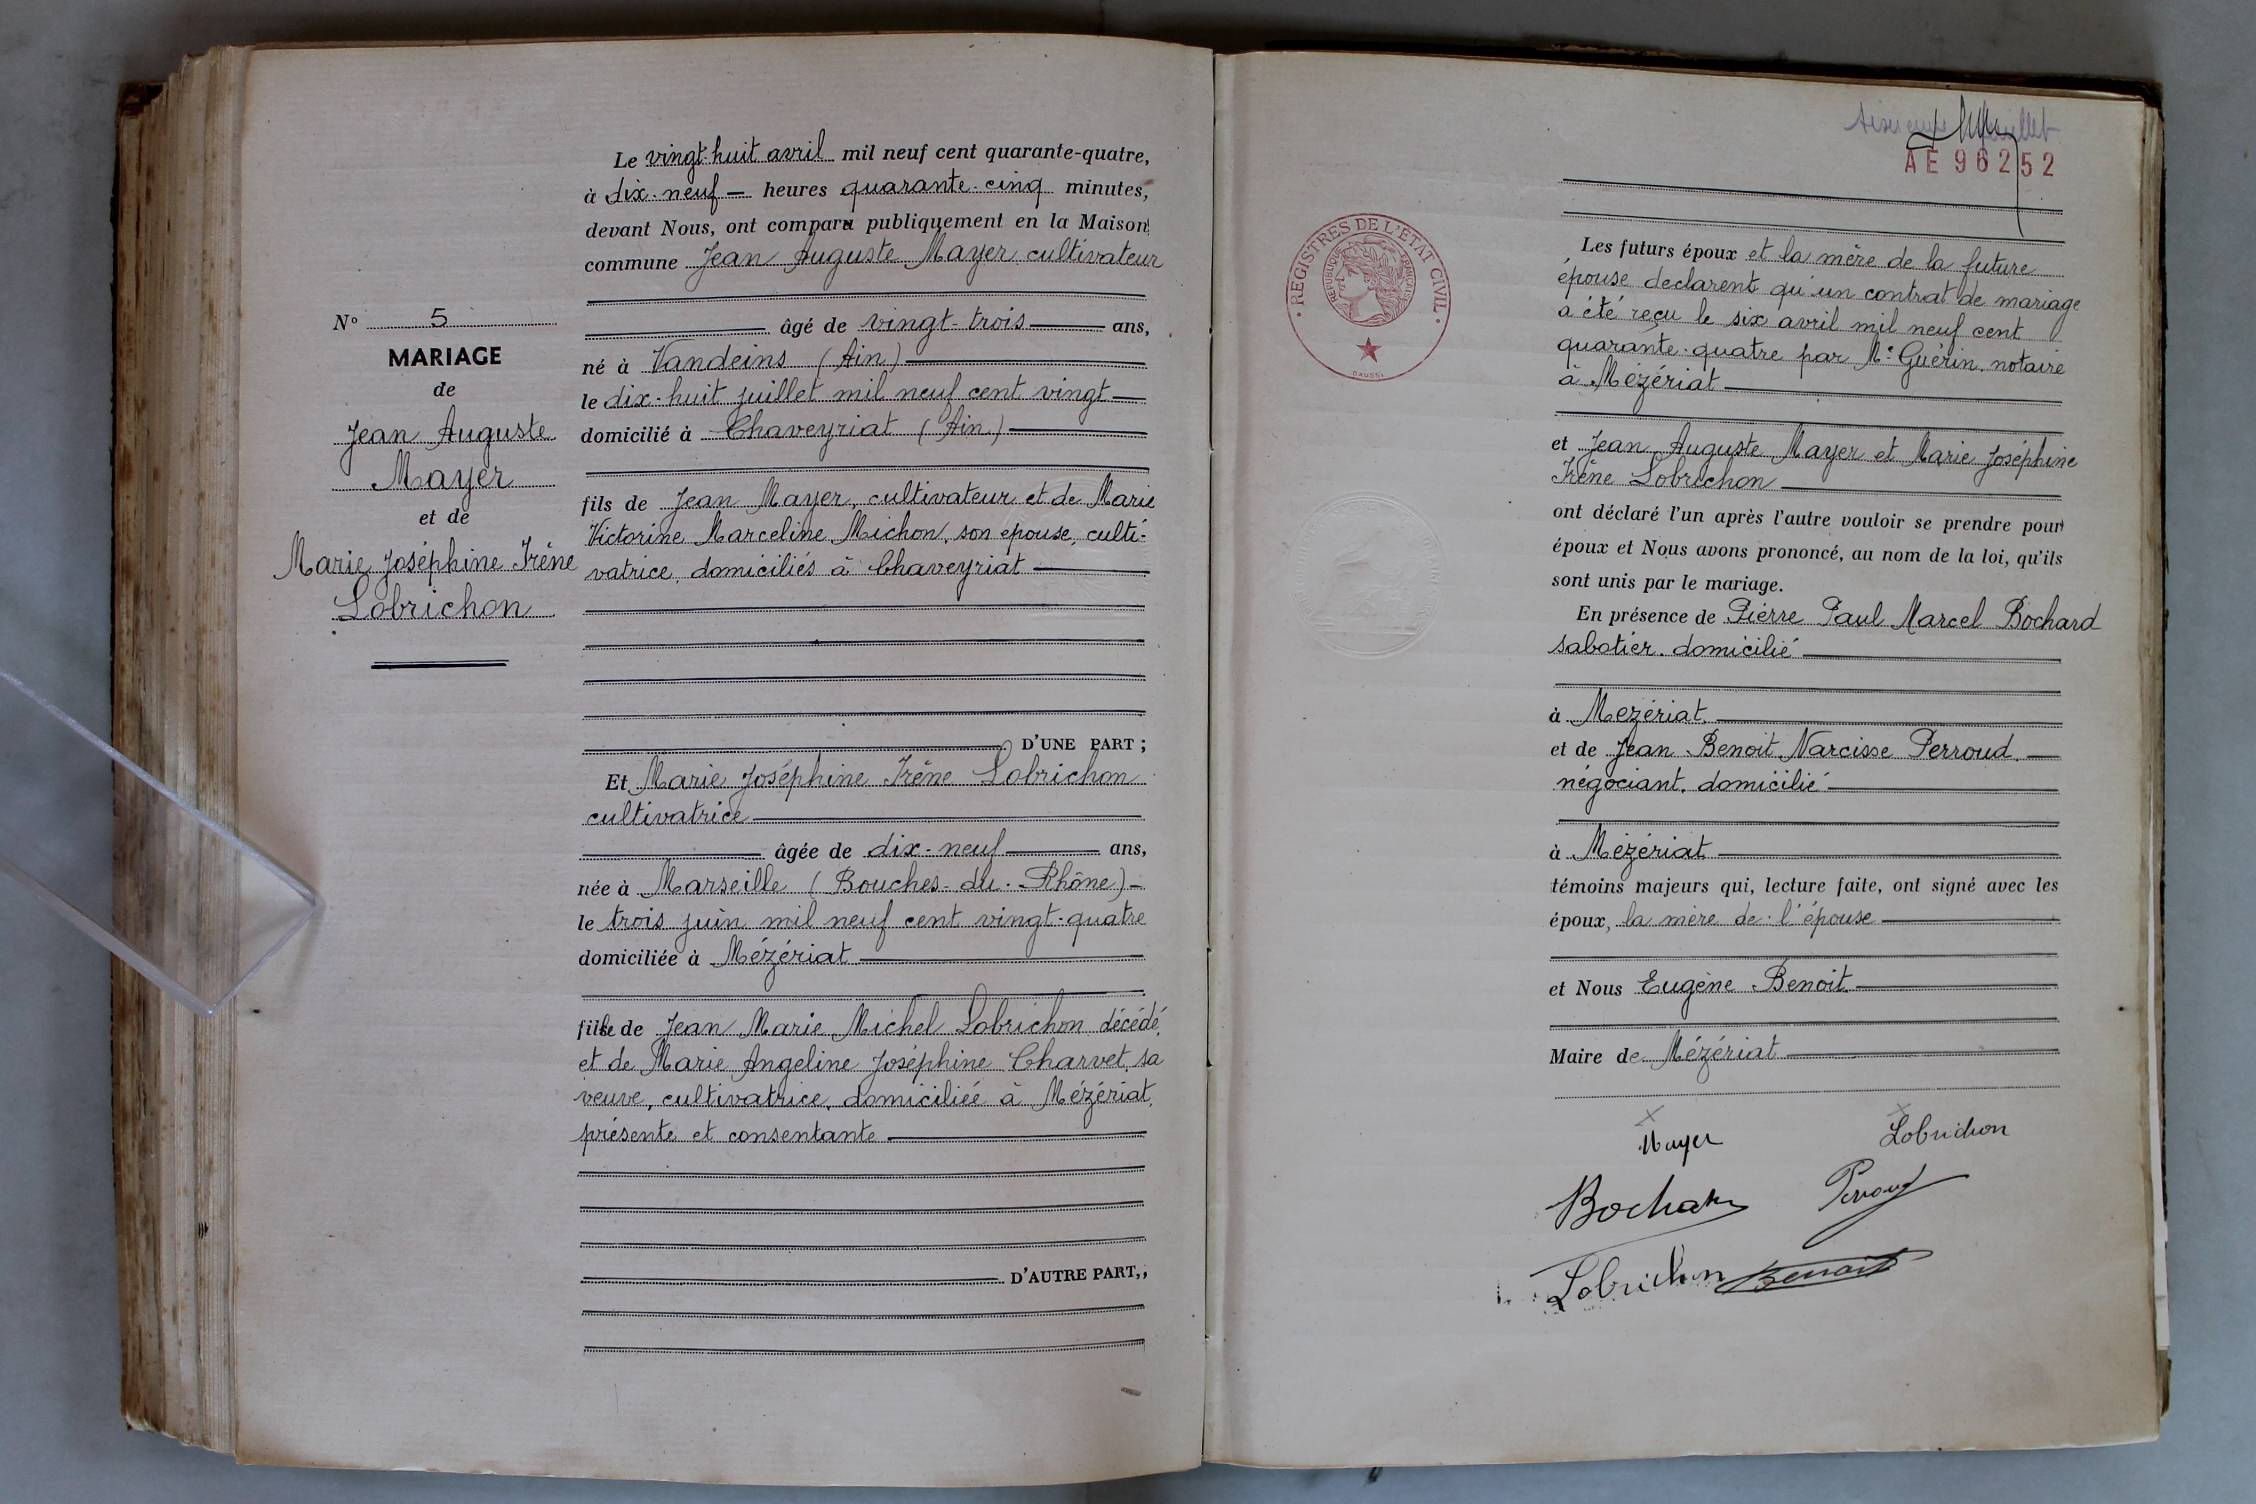 N° 5
MARIAGE
de
Jean Auguste
Mayer
et de
Marie Joséphine Irène
Lobrichon
Le vingt-huit avril mil neuf cent quarante-quatre,
à dix-neuf — heures quarante-cinq minutes,
devant Nous, ont comparu publiquement en la Maison
commune Jean Auguste Mayer cultivateur
âgé de vingt-trois ans,
né à Vandeins (Ain)
le dix-huit juillet mil neuf cent vingt
domicilié à Chaveyriat (Ain)
fils de Jean Mayer, cultivateur et de Marie
Victorine Marceline Michon, son epouse, culti-
vatrice, domiciliés à Chaveyriat
D'UNE PART ;
Et Marie Joséphine Irène Lobrichon
cultivatrice
âgée de dix-neuf ans,
née à Marseille (Bouches-du-Rhône)
le trois juin mil neuf cent vingt-quatre
domiciliée à Mézériat
fille de Jean Marie Michel Lobrichon décédé,
et de Marie Angeline Joséphine Charvet, sa
veuve, cultivatrice, domiciliée à Mézériat,
présente et consentante
D'AUTRE PART,,
feuillet
AE 96252
REGISTRES DE L'ÉTAT CIVIL
RÉPUBLIQUE FRANÇAISE
Les futurs époux et la mère de la future
épouse declarent qu'un contrat de mariage
a été reçu le six avril mil neuf cent
quarante-quatre par Me Guérin, notaire
à Mézériat
et Jean Auguste Mayer et Marie Joséphine
Irène Lobrichon
ont déclaré l'un après l'autre vouloir se prendre pour
époux et Nous avons prononcé, au nom de la loi, qu'ils
sont unis par le mariage.
En présence de Pierre Paul Marcel Bochard
sabotier, domicilié
à Mezériat.
et de Jean Benoit Narcisse Perroud,
négociant, domicilié
à Mézériat
témoins majeurs qui, lecture faite, ont signé avec les
époux, la mère de l'épouse
et Nous Eugène Benoit
Maire de Mézériat
Mayer
Lobrichon
Bochard
Perroud
Lobrichon
Benoit